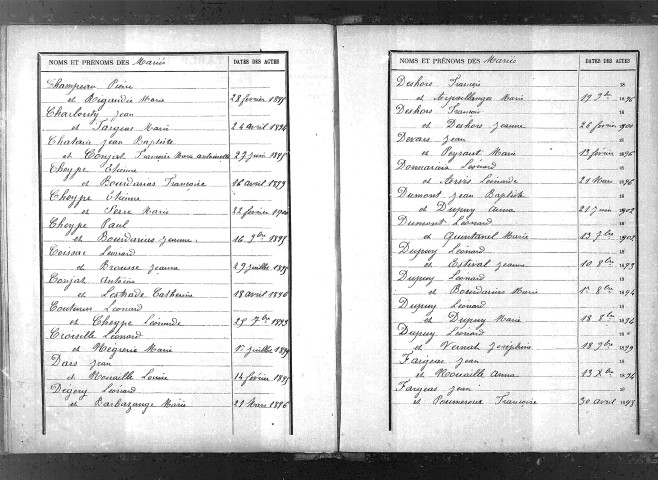 NOMS ET PRÉNOMS DES Mariés DATES DES ACTES
Champeau Pierre
et Regaudie Marie 28 février 1895
Charlouty Jean
et Fargeas Marie 24 avril 1894
Chatain Jean Baptiste
et Conjat Françoise Marie Antoinette 29 juin 1895
Cheype Etienne
et Bourdarias Françoise 16 avril 1899
Cheype Etienne
et Serre Marie 22 février 1900
Cheype Paul
et Bourdarias Jeanne 16 9bre 1895
Coissac Léonard
et Drousse Jeanne 29 juillet
Conjat Antoine
et Lestrade Catherine 18 avril 1896
Couturas Léonard
et Cheype Léonarde 25 7bre 1893
Croisille Léonard
et Négrerie Marie 1er juillet
Dars Jean
et Nouaille Louise 14 février 1895
Dégery Léonard
et Barbazange Marie 21 Mars 1896
NOMS ET PRÉNOMS DES Mariés DATES DES ACTES
Deshors François 18
et Marie 19 9bre 1896
Deshors François 18
et Deshors Jeanne 26 février 1900
Devaux Jean 18
et Peyraut Marie 13 février 1896
Donnarain Léonard 18
et Léonarde 21 Mars 1896
Dumont Jean Baptiste 18
et Dupuy Anna 21 juin 1902
Dumont Léonard 18
et Quintanel Marie 13 7bre 1902
Dupuy Léonard 18
et Estival Jeanne 10 8bre 1893
Dupuy Léonard 18
et Bourdarias Marie 1er 8bre 1894
Dupuy Léonard 18
et Dupuy Marie 18 8bre 1894
Dupuy Léonard 18
et Vernat Joséphine 18 9bre 1899
Fargeas Jean 18
et Nouaille Anna 13 Xbre 1894
Fargeas Jean 18
et Poumeroux Françoise 30 avril 1893